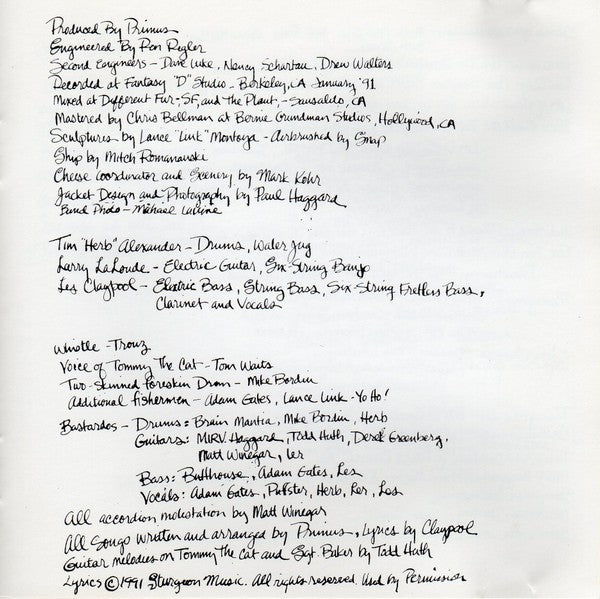 Produced By Primus
Engineered By Ron Rigler
Second Engineers - Dave Luke, Nancy Scharlau, Drew Walters
Recorded at Fantasy "D" Studio - Berkeley, CA January '91
Mixed at Different Fur - SF, and the Plant, - Sausalito, CA
Mastered by Chris Bellman at Bernie Grundman Studios, Hollywood, CA
Sculptures by Lance "Link" Montoya - Airbrushed by Snap
Ship by Mitch Romanauski
Cheese Coordinator and Scenery by Mark Kohr
Jacket Design and Photography by Paul Haggard
Band Photo - Michael Lavine
Tim "Herb" Alexander - Drums, Water Jug
Larry LaLonde - Electric Guitar, Six-String Banjo
Les Claypool - Electric Bass, String Bass, Six-String Fretless Bass,
Clarinet and Vocals
Whistle - Trouz
Voice of Tommy The Cat - Tom Waits
Two-Skinned Foreskin Drom - Mike Bordin
Additional fishermen - Adam Gates, Lance Link - Yo Ho!
Bastardos - Drums: Brain Mantia, Mike Bordin, Herb
Guitars: MIRV Haggard, Todd Huth, Derek Greenberg,
Matt Winegar, Ler
Bass: Butthouse, Adam Gates, Les
Vocals: Adam Gates, Puffster, Herb, Ler, Les
All accordion molestation by Matt Winegar
All Songs Written and arranged by Primus, Lyrics by Claypool
Guitar melodies on Tommy The Cat and Sgt. Baker by Todd Huth
Lyrics © 1991 Sturgeon Music. All rights reserved. Used by Permission